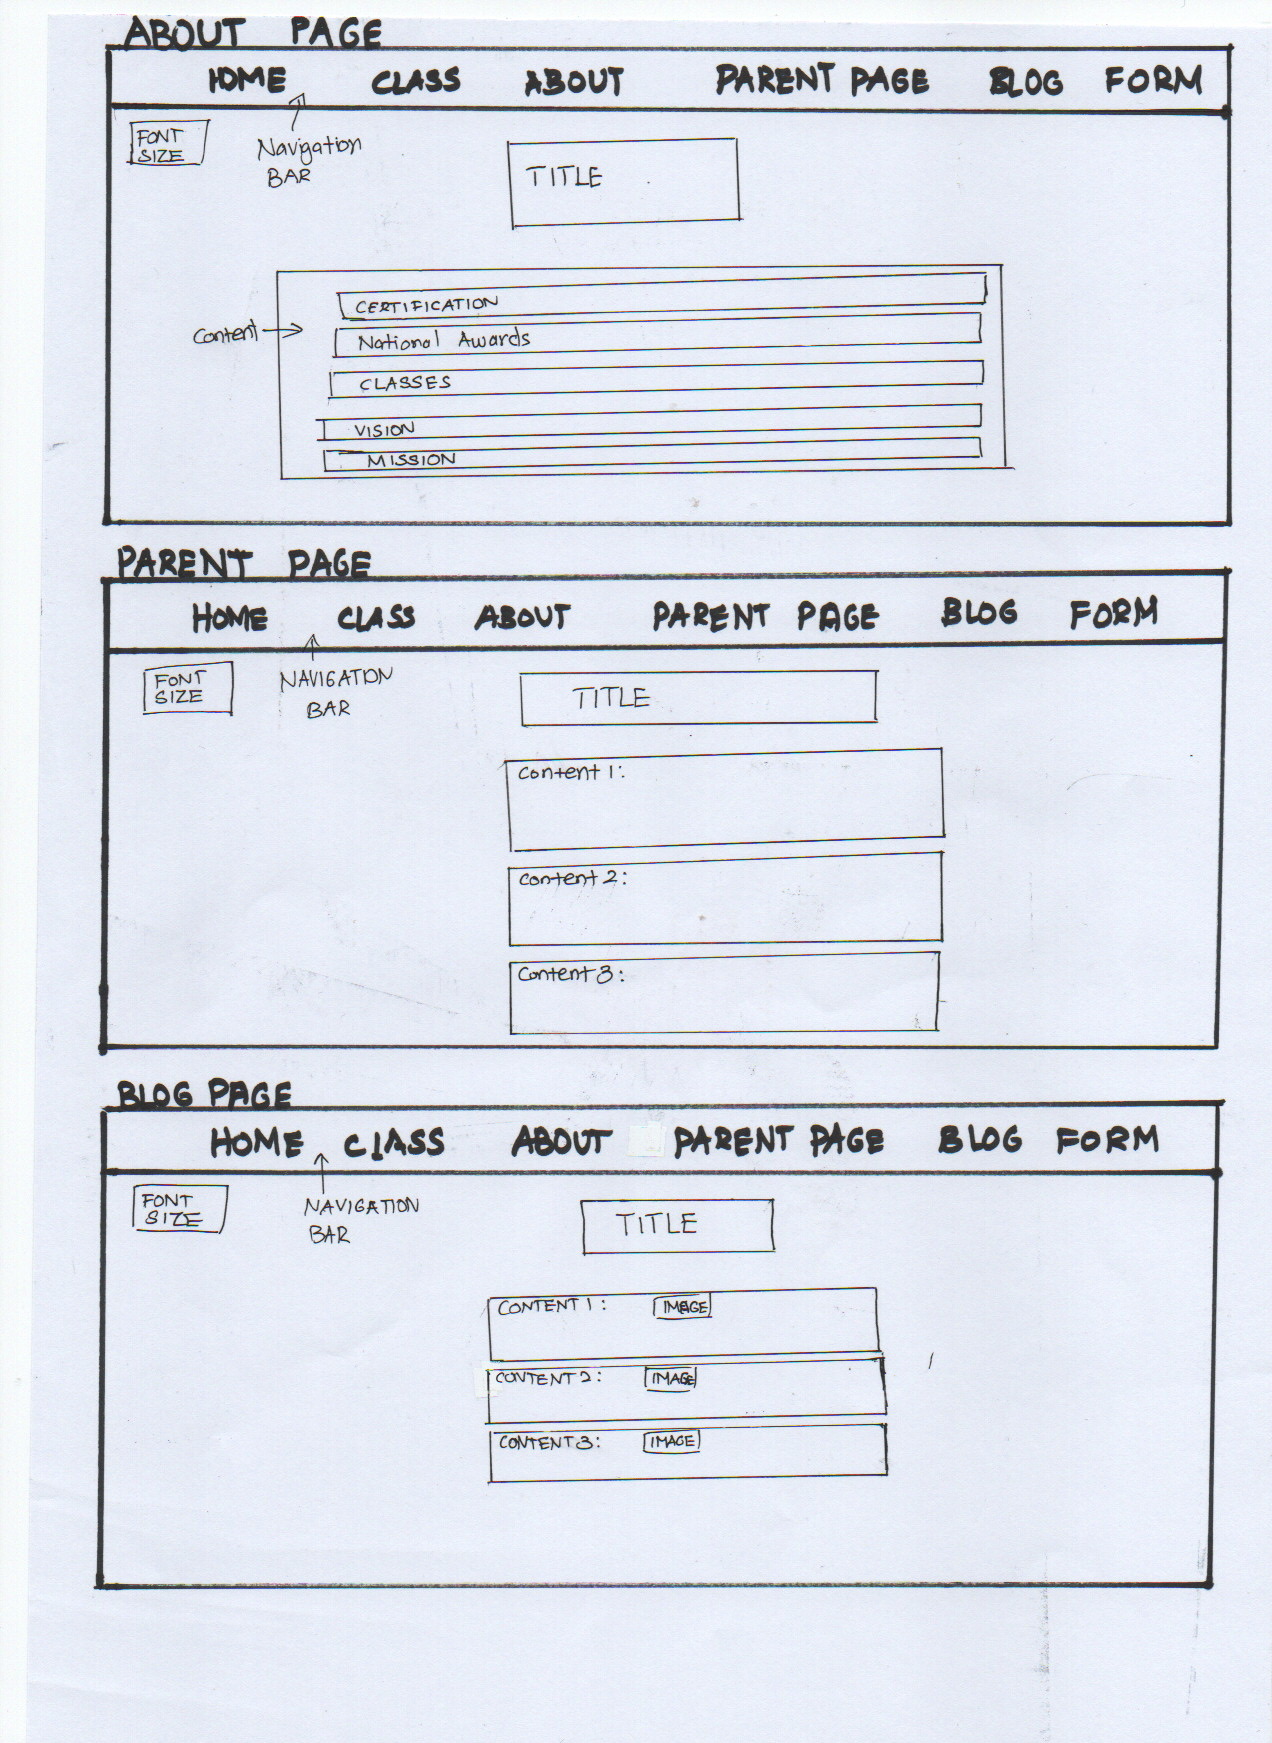 ABOUT PAGE
HOME CLASS ABOUT PARENT PAGE BLOG FORM
FONT
SIZE
Navigation
BAR
TITLE
Content
CERTIFICATION
National Awards
CLASSES
VISION
MISSION
PARENT PAGE
HOME CLASS ABOUT PARENT PAGE BLOG FORM
FONT
SIZE
NAVIGATION
BAR
TITLE
Content 1:
Content 2:
Content 3:
BLOG PAGE
HOME CLASS ABOUT PARENT PAGE BLOG FORM
FONT
SIZE
NAVIGATION
BAR
TITLE
CONTENT 1: IMAGE
CONTENT 2: IMAGE
CONTENT 3: IMAGE